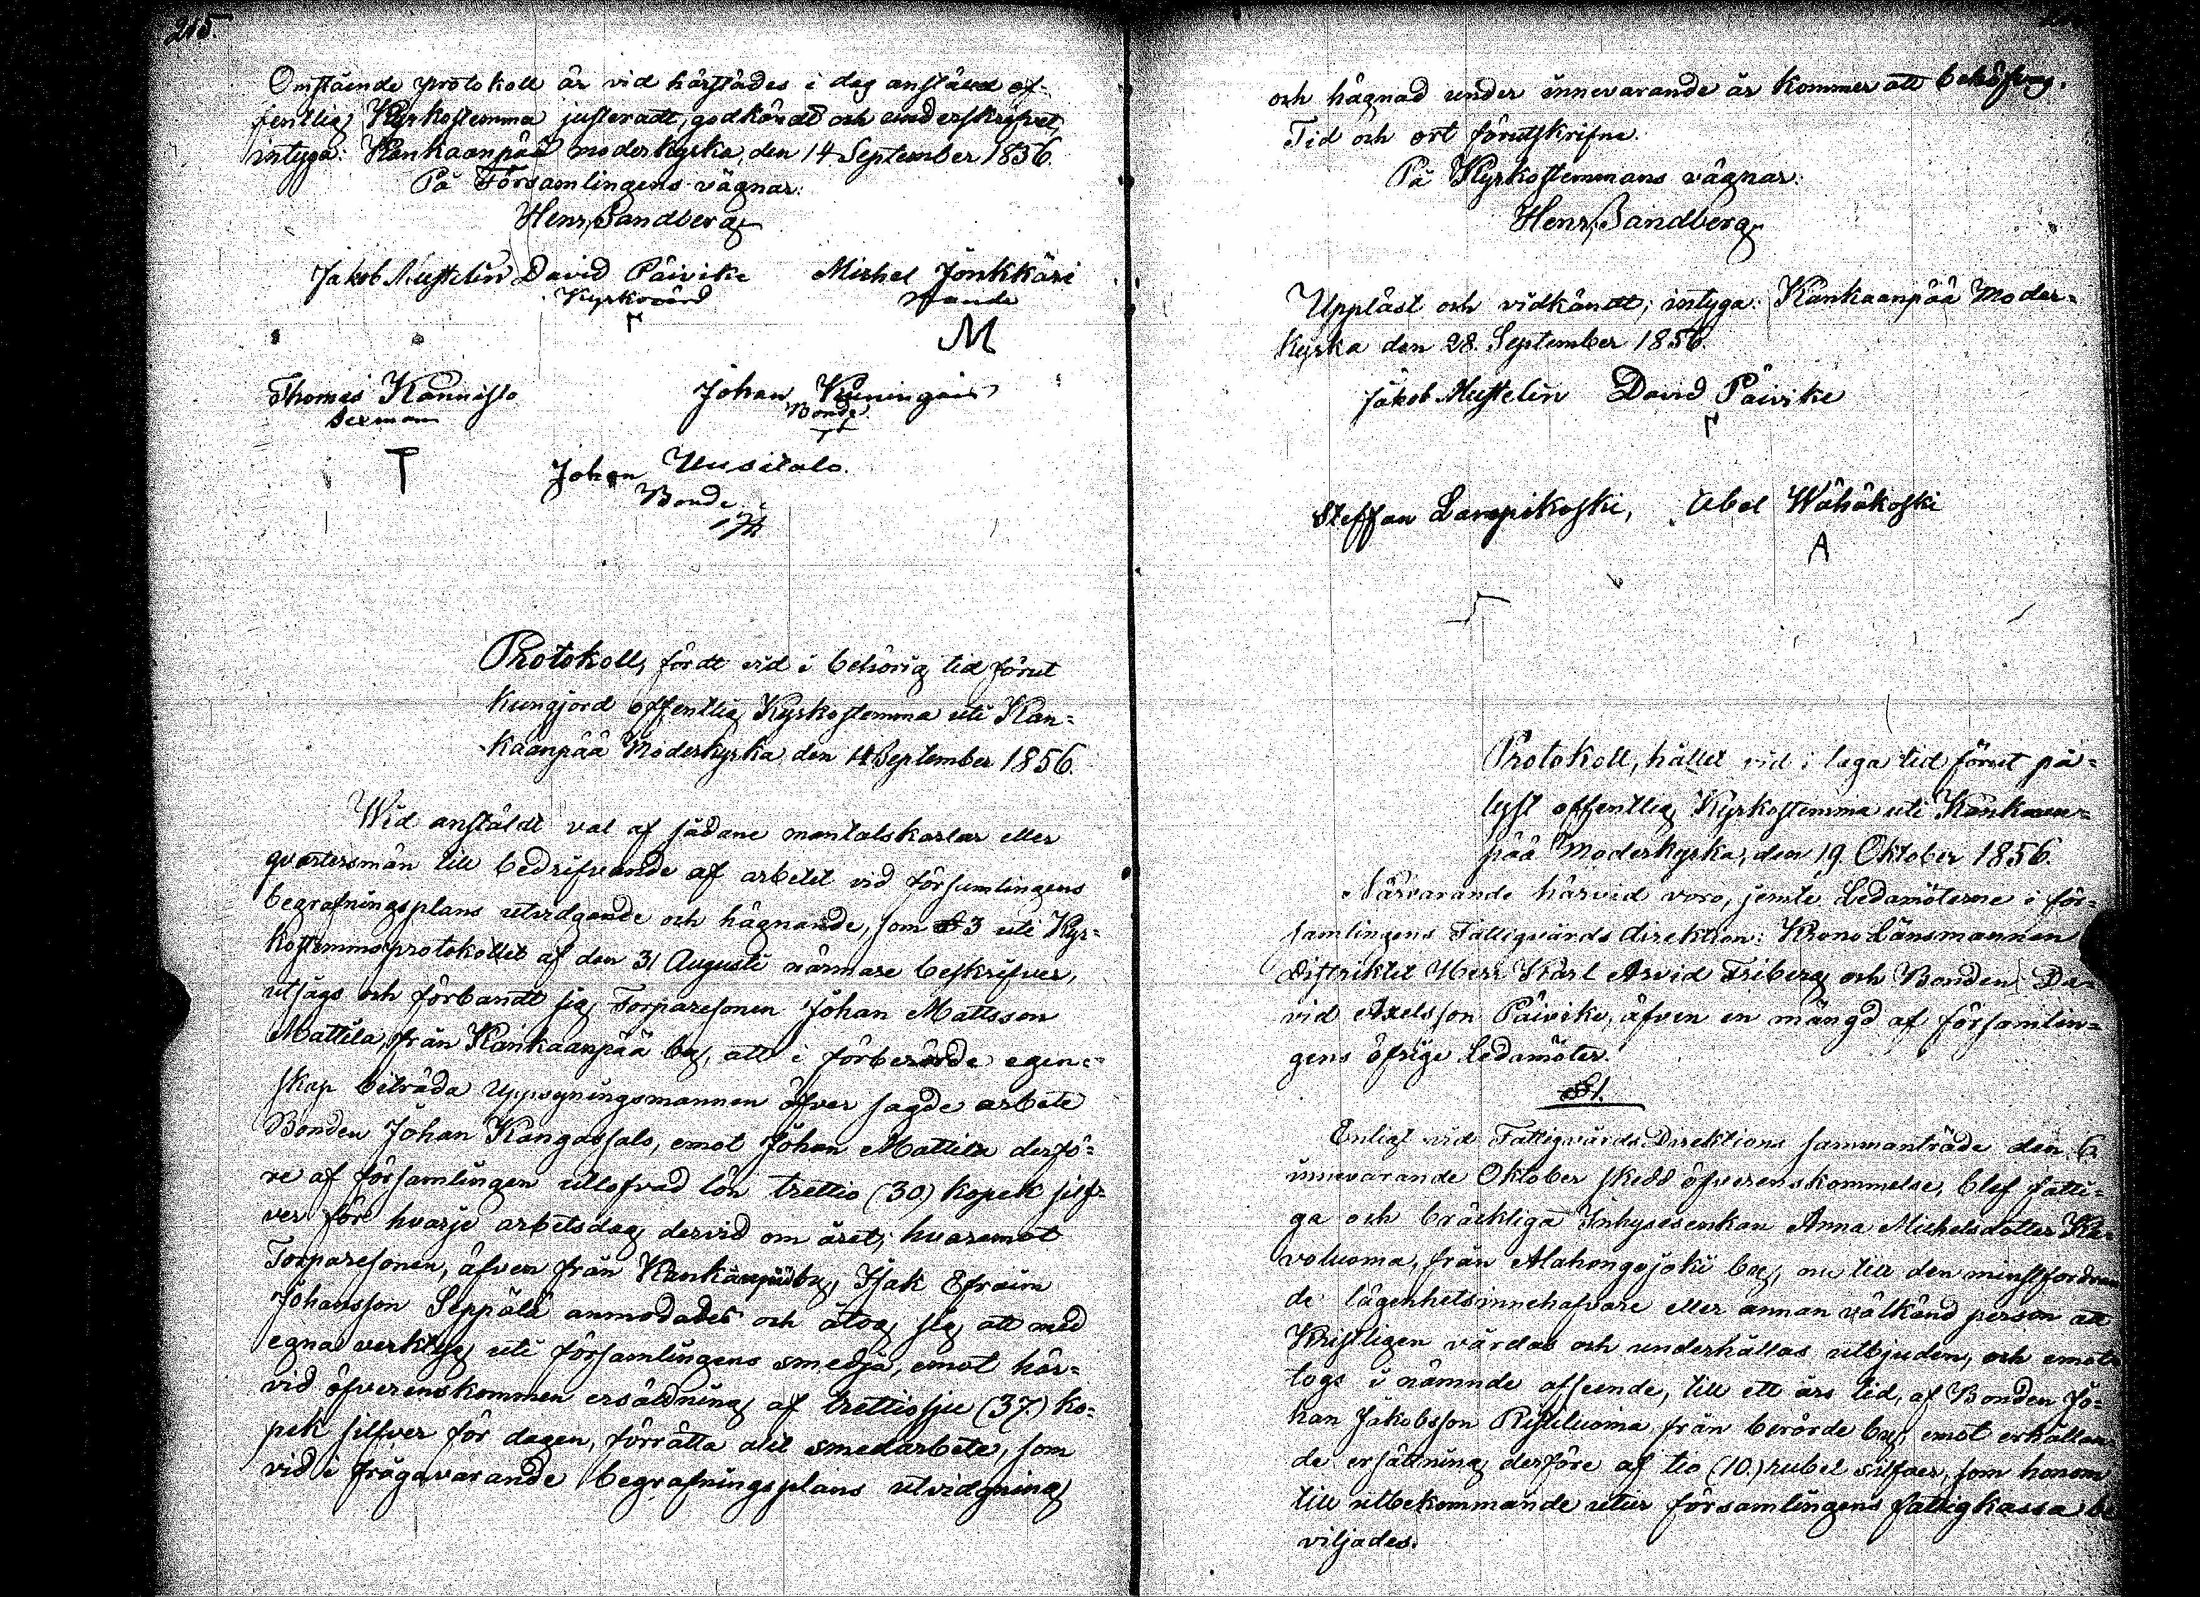 215.
Omstående protokoll är vid härstädes i dag anstäld of-
fentlig Kyrkostemma justeradt, godkändt och underskrifvet,
intyga: Kankaanpää moderkyrka, den 14 September 1856.
På Församlingens vägnar:
Henr. Sandberg
Jakob Mustelin David Päivike Michel Jönkkäri
Kyrkovärd
M
Thomas Kannisto Johan Kuningas
Sexman Bonde
T
Johan Uusitalo.
Bonde
Protokoll, fördt vid i behörig tid förut
kungjord offentlig Kyrkostemma uti Kan=
kaanpää Moderkyrka den 14 September 1856.
Wid anstäldt val af sådane mantalskarlar eller
qvartersmän till bedrifvande af arbetet vid församlingens
begrafningsplans utvidgande och hägnande, som § 3 uti Kyr=
kostemmoprotokollet af den 31 Augusti närmare beskrifver,
utsågs och förbandt sig Torparesonen Johan Mattsson
Mattila, från Kankaanpää by, att i förberörde egen=
skap biträda Uppsyningsmannen öfver sagde arbete
Bonden Johan Kangassalo, emot Johan Mattila derfö=
re af församlingen utlofvad lön trettio (30) kopek silf=
ver för hvarje arbetsdag dervid om året; hvaremot
Torparesonen, äfven från Kankaanpää by, Isak Efraim
Johansson Seppälä anmodades och åtog sig att med
egna verktyg uti församlingens smedja, emot här=
vid öfverenskommen ersättning af trettiosju (37.) ko=
pek silfver för dagen, förrätta allt smedarbete, som
vid i frågavarande begrafningsplans utvidgning
och hägnad under innevarande år kommer att behöfvas.
Tid och ort förutskrifne.
På Kyrkostemmans vägnar:
Henr. Sandberg
Uppläst och vidkändt, intyga: Kankaanpää Moder=
kyrka den 28. September 1856.
Jakob Mustelin David Päivike
Steffan Lampikoski, Abel Wähäkoski
A
Protokoll, hållet vid i laga tid förut på=
lyst offentlig Kyrkostemma uti Kankaan=
pää Moderkyrka, den 19. Oktober 1856.
Närvarande härvid voro, jemte Ledamöterne i för=
samlingens Fattigvårds direktion: KronoLänsmannen
distriktet Herr Karl Arvid Friberg och Bonden Da=
vid Axelsson Päivike, äfven en mängd af församlin=
gens öfrige ledamöter.
§ 1.
Enligt vid Fattigvårds Direktions sammanträde den 6.
innevarande Oktober skedd öfverenskommelse, blef fatti=
ga och bräckliga Inhysesenkan Anna Michelsdotter Ka=
voluoma, från Alahongojoki by, nu till den minstfordran
de lägenhetsinnehafvare eller annan välkänd person att
Kristligen vårdas och underhållas utbjuden, och emot
togs i nämnde afseende, till ett års tid, af Bonden Jo=
han Jakobsson Ristiluoma från berörde by, emot erhållan=
de ersättning derföre af tio (10.) rubel silfver, som honom
till utbekommande utur församlingens fattigkassa be
viljades.